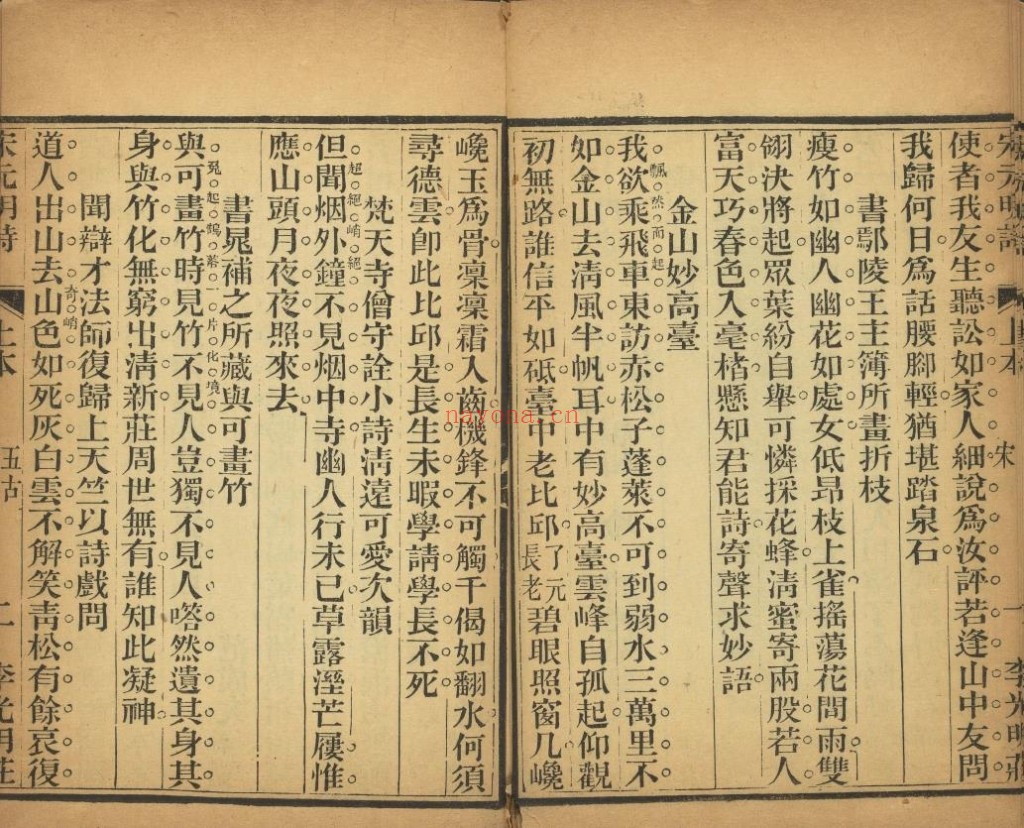 使者我友生聽訟如家人細說爲汝評若逢山中友問
我歸何日爲話腰腳輕猶堪踏泉石
書鄢陵王主簿所畫折枝
瘦竹如幽人幽花如處女低昂枝上雀搖蕩花間雨雙
翎決將起眾葉紛自舉可憐採花蜂淸蜜寄兩股若人
富天巧春色入毫楮懸知君能詩寄聲求妙語
金山妙高臺
飄然而起
我欲乘飛車東訪赤松子蓬萊不可到弱水三萬里不
如金山去淸風半帆耳中有妙高臺雲峰自孤起仰觀
初無路誰信平如砥臺中老比邱了元長老碧眼照窗几巉
巉玉爲骨凜凜霜入齒機鋒不可觸千偈如翻水何須
尋德雲卽此比邱是長生未暇學請學長不死
梵天寺僧守詮小詩淸遠可愛次韻
超絕峭絕
但聞烟外鐘不見烟中寺幽人行未已草露溼芒屨惟
應山頭月夜夜照來去
書晁補之所藏與可畫竹
兔起鶻落一片化境
與可畫竹時見竹不見人豈獨不見人嗒然遺其身其
身與竹化無窮出淸新莊周世無有誰知此凝神
聞辯才法師復歸上天竺以詩戲問
奇峭
道人出山去山色如死灰白雲不解笑靑松有餘哀復
宋元明詩 上本 五古 二 李光明莊
nayona.cn